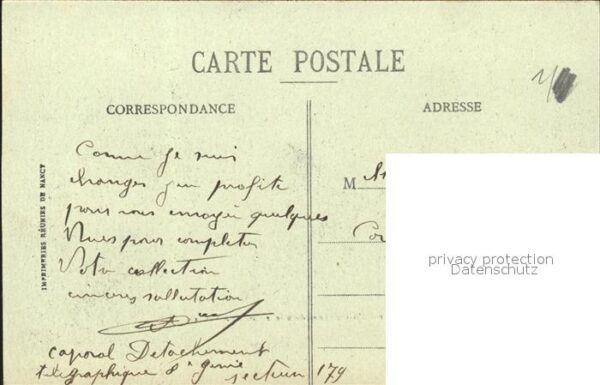 CARTE POSTALE
CORRESPONDANCE
ADRESSE
Comme je suis
changer j'en profite
pour vous envoyer quelques
Vues pour completer
Votre collection
sinceres sallutation
caporal Detachement
telegraphique 8e genie
secteur 179
M
IMPRIMERIES RÉUNIES DE NANCY
privacy protection
Datenschutz